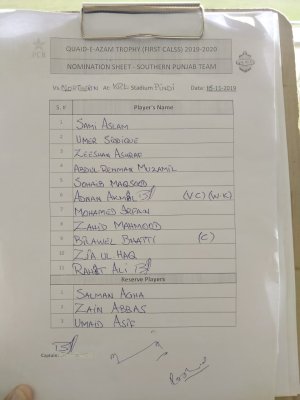 PCB
QUAID-E-AZAM TROPHY (FIRST-CALSS) 2019-2020
NOMINATION SHEET - SOUTHERN PUNJAB TEAM
Vs. NORTHERN At: KRL Stadium PINDI Date: 05-11-2019
S. # Player's Name
1 SAMI ASLAM
2 UMER SIDDIQUE
3 ZEESHAN ASHRAF
4 ABDUL REHMAN MUZAMIL
5 SOHAIB MAQSOOD
6 ADNAN AKMAL (VC) (W-K)
7 MOHAMED IRFAN
8 ZAHID MAHMOOD
9 BILAWEL BHATTI (C)
10 ZIA UL HAQ
11 RAHAT ALI
Reserve Players
1 SALMAN AGHA
2 ZAIN ABBAS
3 UMAID ASIF
Captain: